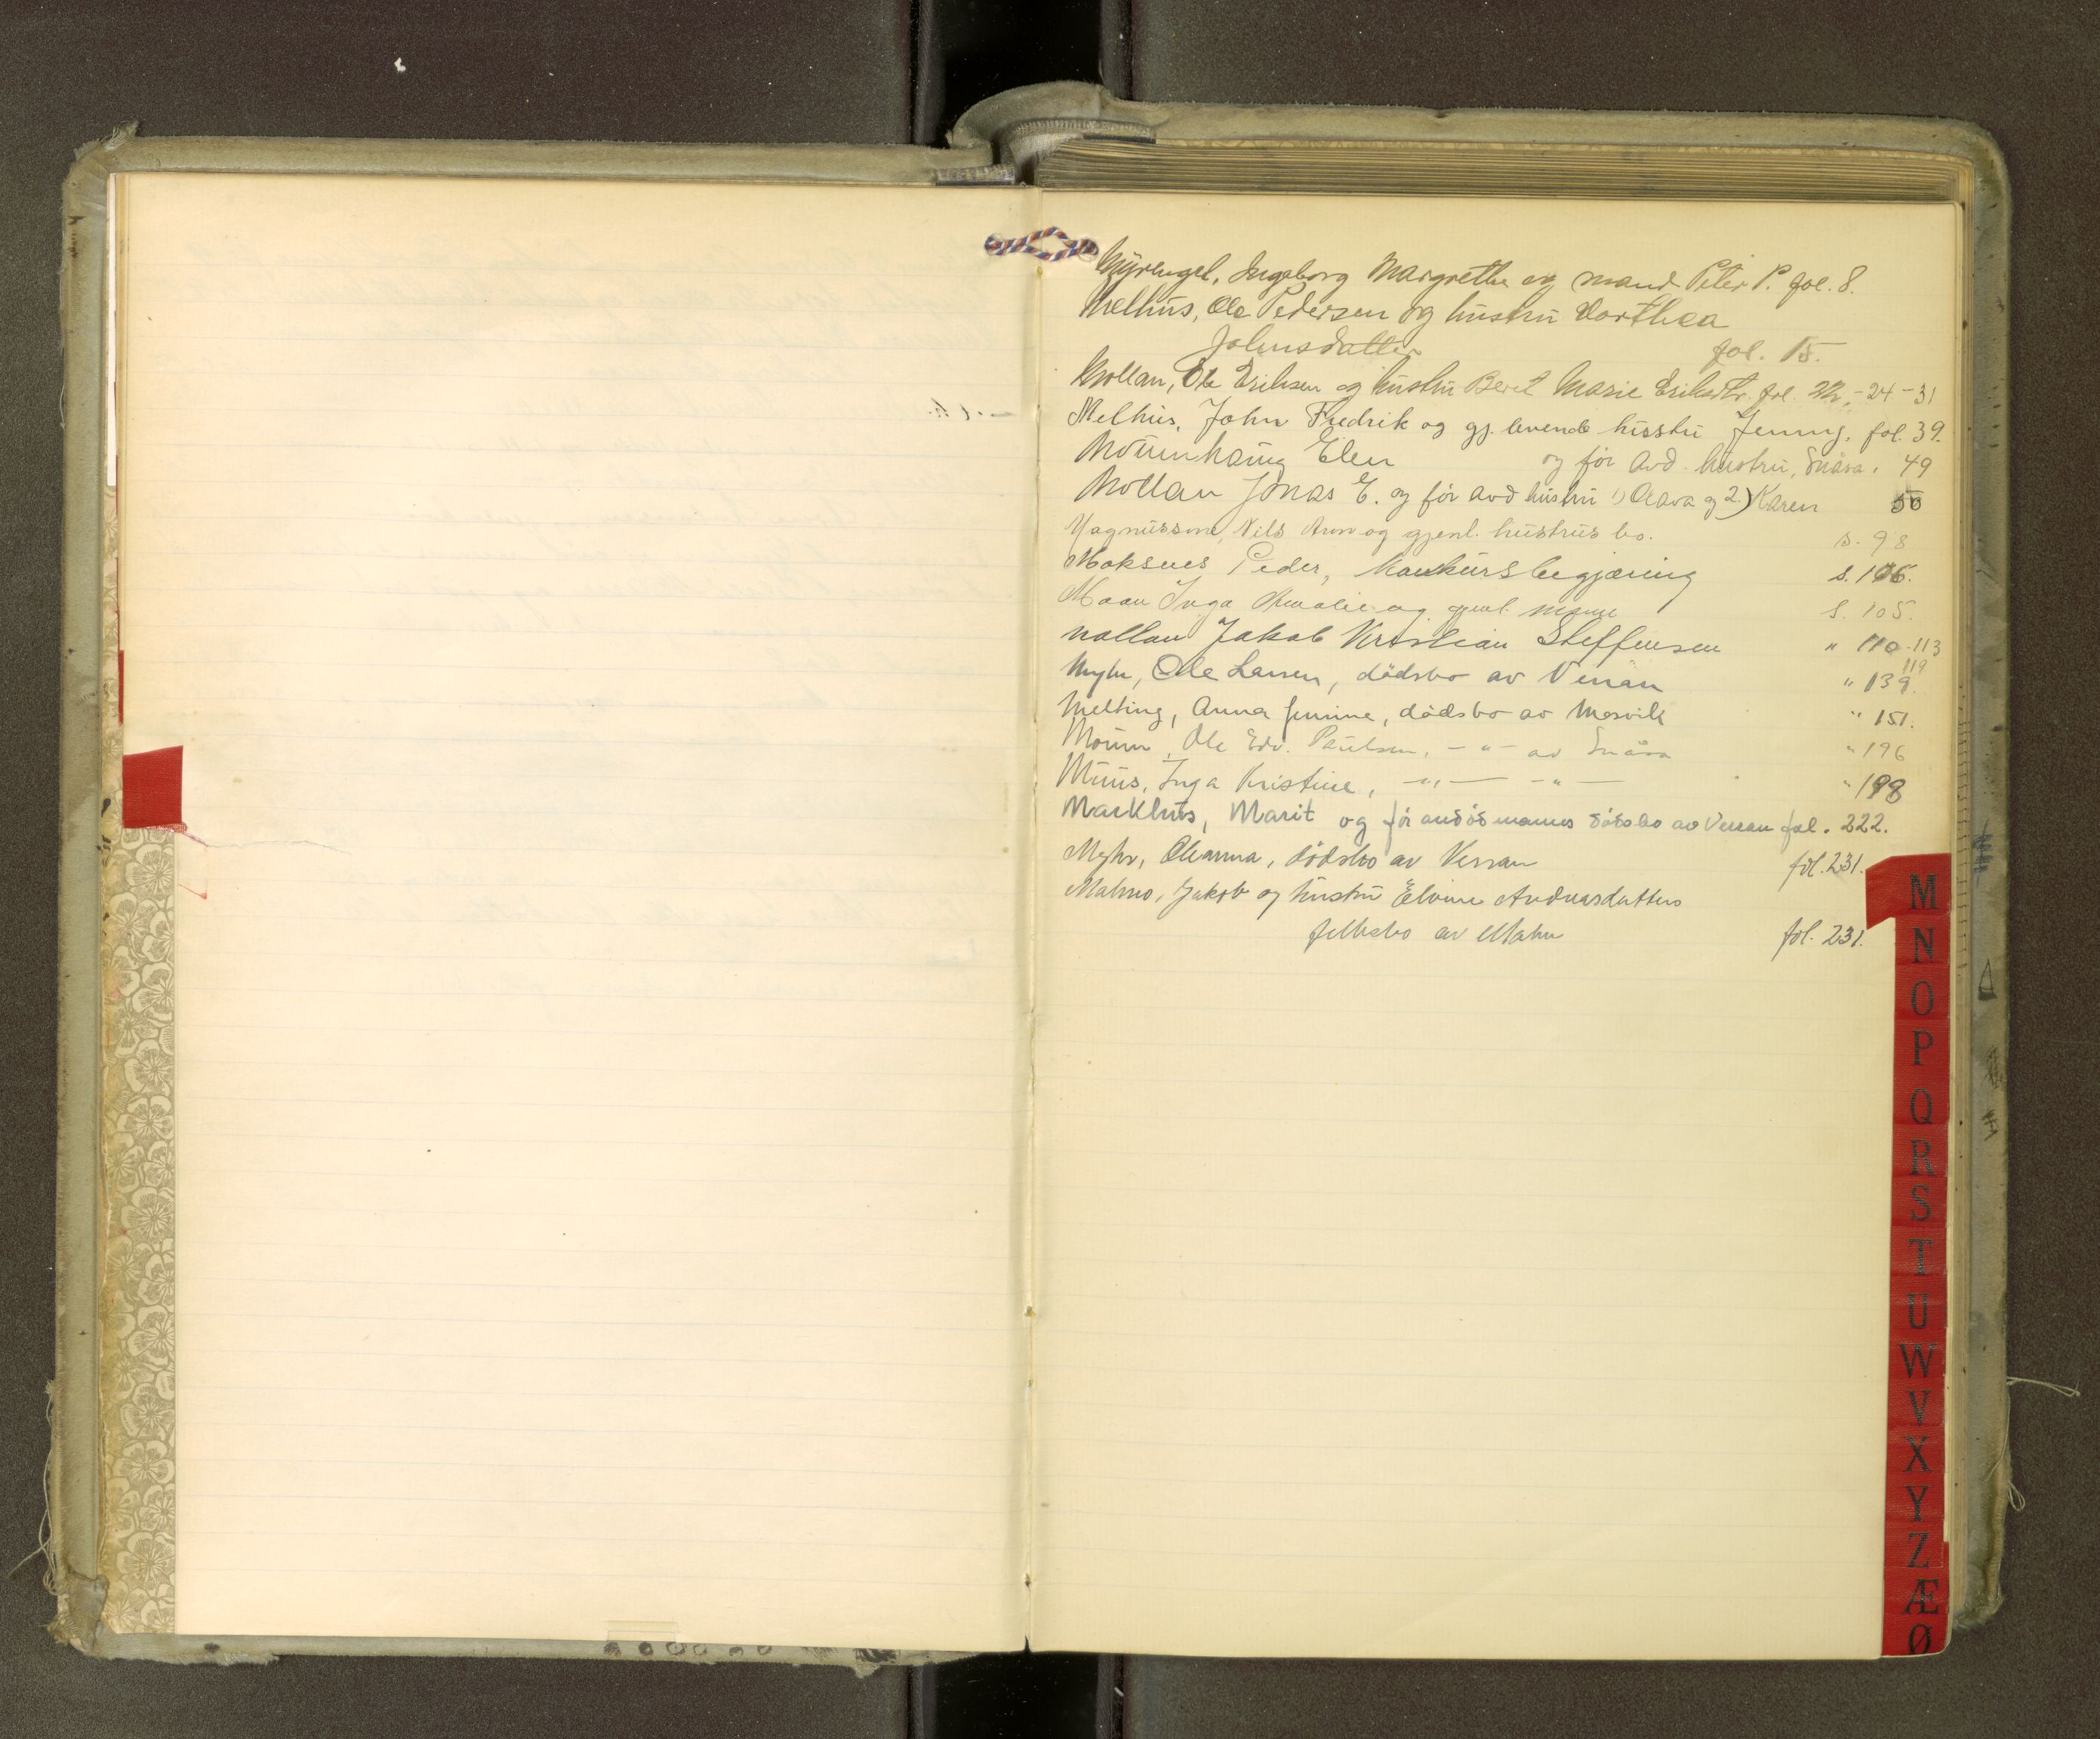 Myrengel, Ingeborg Margrethe og mand Peter P. fol. 8.
Melhus, Ole Pedersen og hustru Dorthea
Johnsdatter fol. 15.
Mollan, Ole Eriksen og hustru Beret Marie Eriksdtr. fol. 22, - 24 - 31
Melhus, John Fredrik og gj. levende hustru Jenny, fol. 39.
Moumhaug Elen og før avd. hustru, Snåsa, 49
Mollan Jonas E. og før avd hustru 1) Olava og 2) Karen 50
Magnussen, Nils Arn og gjenl. hustrus bo. s. 98
Moksnes Peder, konkursbegjæring s. 105.
Moan Inga Amalie og gjenl. mann s. 105.
Mollan Jakob Kristian Steffensen " 110-113
119
Myhr, Ole Larsen, dødsbo av Verran " 139.
Melting, Anna Jennine, dødsbo av Mosvik " 151.
Moum, Ole Edv. Paulsen, - " - av Snåsa " 196
Muus, Inga Kristine, - " - - " - " 198
Markhus, Marit og før avdøde manns dødsbo av Verran fol. 222.
Myhr, Oleanna, dødsbo av Verran fol. 231.
Malmo, Jakob og hustru Elvine Andreasdatters
fellesbo av Malm fol. 231.
M
N
O
P
Q
R
S
T
U
W
V
X
Y
Z
Æ
Ø